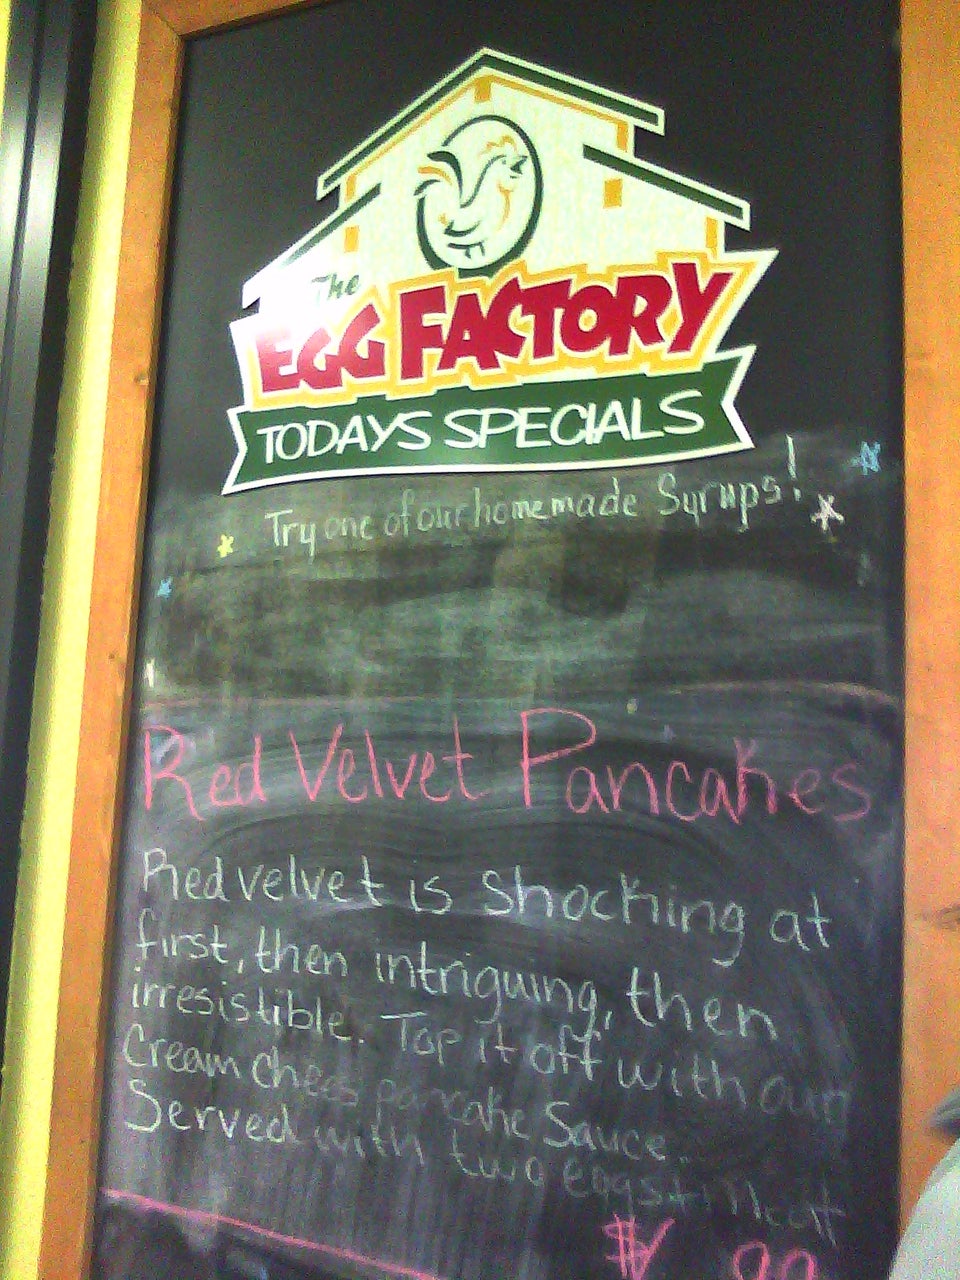 The
EGG FACTORY
TODAYS SPECIALS
Try one of our homemade Syrups!
Red Velvet Pancakes
Red velvet is shocking at
first, then intriguing, then
irresistible. Top it off with our
Cream chees pancake Sauce..
Served with two eggs + Meat
$